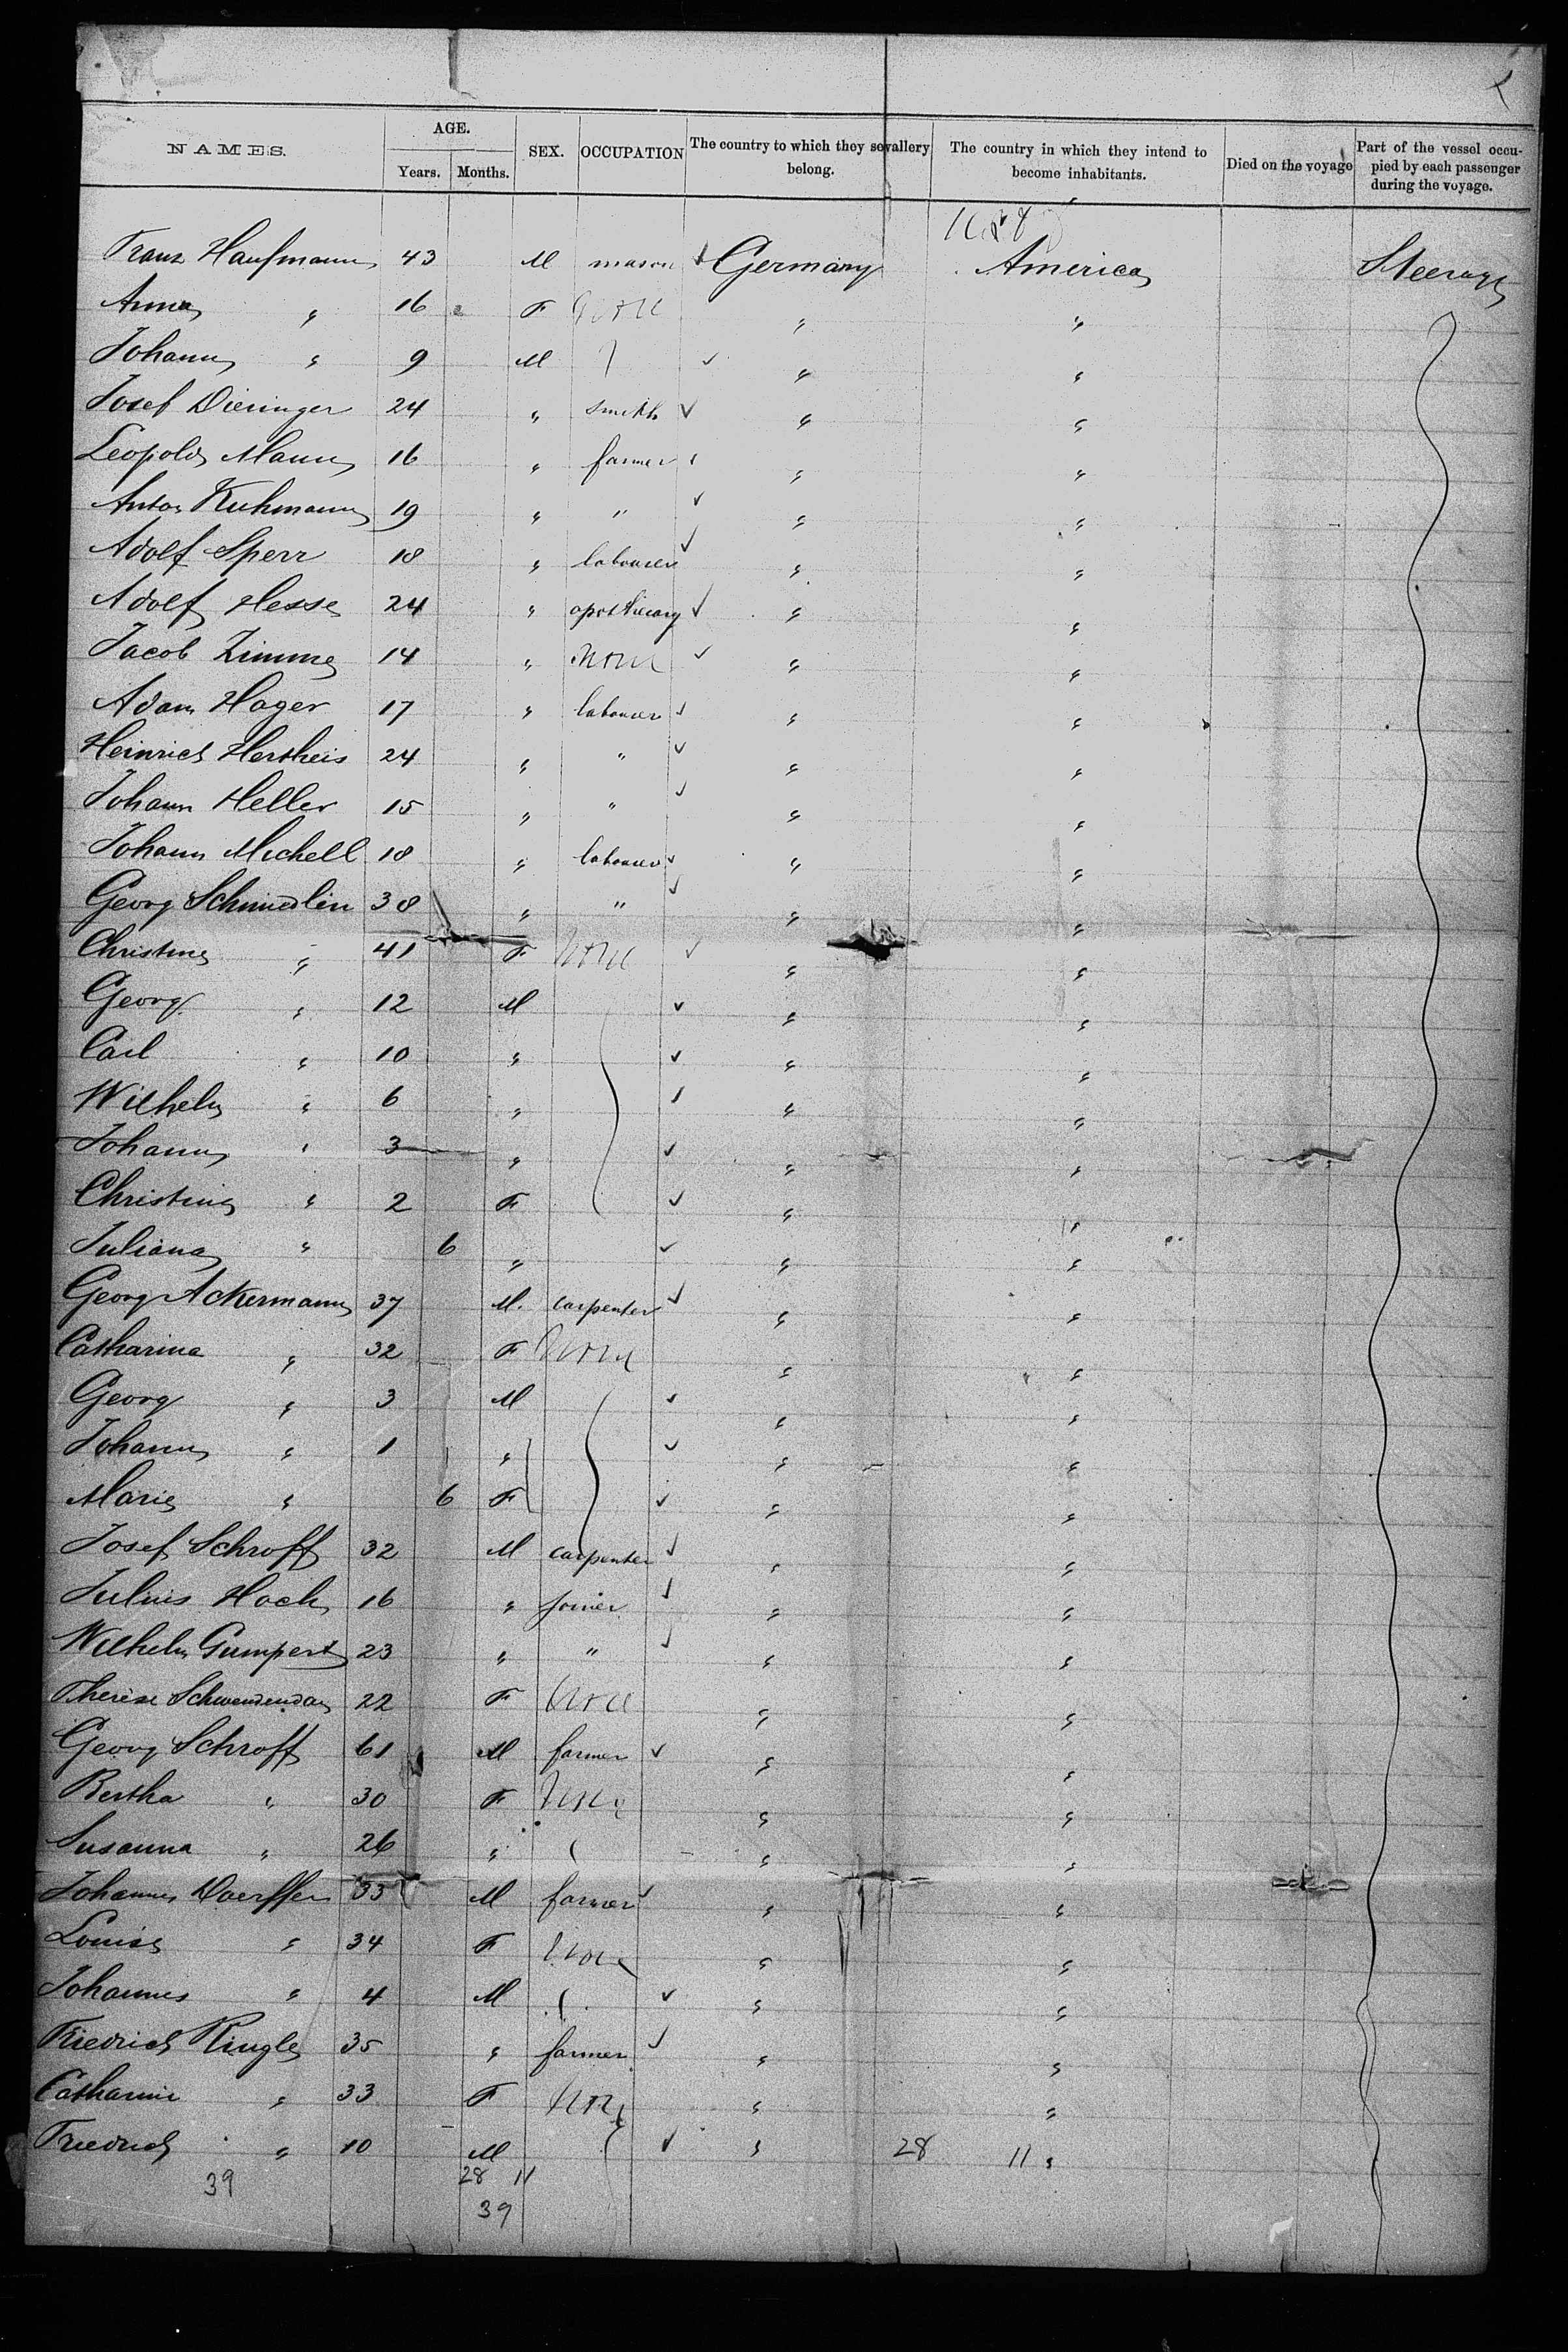 NAMES. AGE. Years. Months. SEX. OCCUPATION The country to which they sevallery belong. The country in which they intend to become inhabitants. Died on the voyage Part of the vessel occupied by each passenger during the voyage.
Franz Haufmann 43 M mason ✓ Germany America Steerage
Anna " 16 F none " "
Johann " 9 M ✓ " "
Josef Dieringer 24 " smith ✓ " "
Leopold Mann 16 " farmer ✓ " "
Anton Kuhmann 19 " " ✓ " "
Adolf Sperr 18 " labourer ✓ " "
Adolf Hesse 24 " apothecary ✓ " "
Jacob Zimme 14 " none ✓ " "
Adam Hager 17 " labourer ✓ " "
Heinrich Hertheis 24 " " ✓ " "
Johann Heller 15 " " ✓ " "
Johann Michell 18 " labourer ✓ " "
Georg Schmiedlin 38 " " ✓ " "
Christine " 41 F none ✓ " "
Georg " 12 M ✓ " "
Carl " 10 " ✓ " "
Wilhelm " 6 " ✓ " "
Johann " 3 " ✓ " "
Christina " 2 F ✓ " "
Juliana " 6 " ✓ " "
Georg Ackermann 37 M. carpenter ✓ " "
Catharina " 32 F none " "
Georg " 3 M ✓ " "
Johann " 1 " ✓ " "
Marie " 6 F ✓ " "
Josef Schroff 32 M carpenter ✓ " "
Julius Hoch 16 " joiner ✓ " "
Wilhelm Gumpert 23 " " ✓ " "
Therese 22 F none " "
Georg Schroff 61 M farmer ✓ " "
Bertha " 30 F none " "
Susanna " 26 " " "
Johannes Doerffer 33 M farmer ✓ " "
Louise " 34 F none " "
Johannes " 4 M ✓ " "
Friedrich Ringle 35 " farmer ✓ " "
Catharine " 33 F none " "
Friedrich " 10 M ✓ " 28 11 "
39 28 11
39